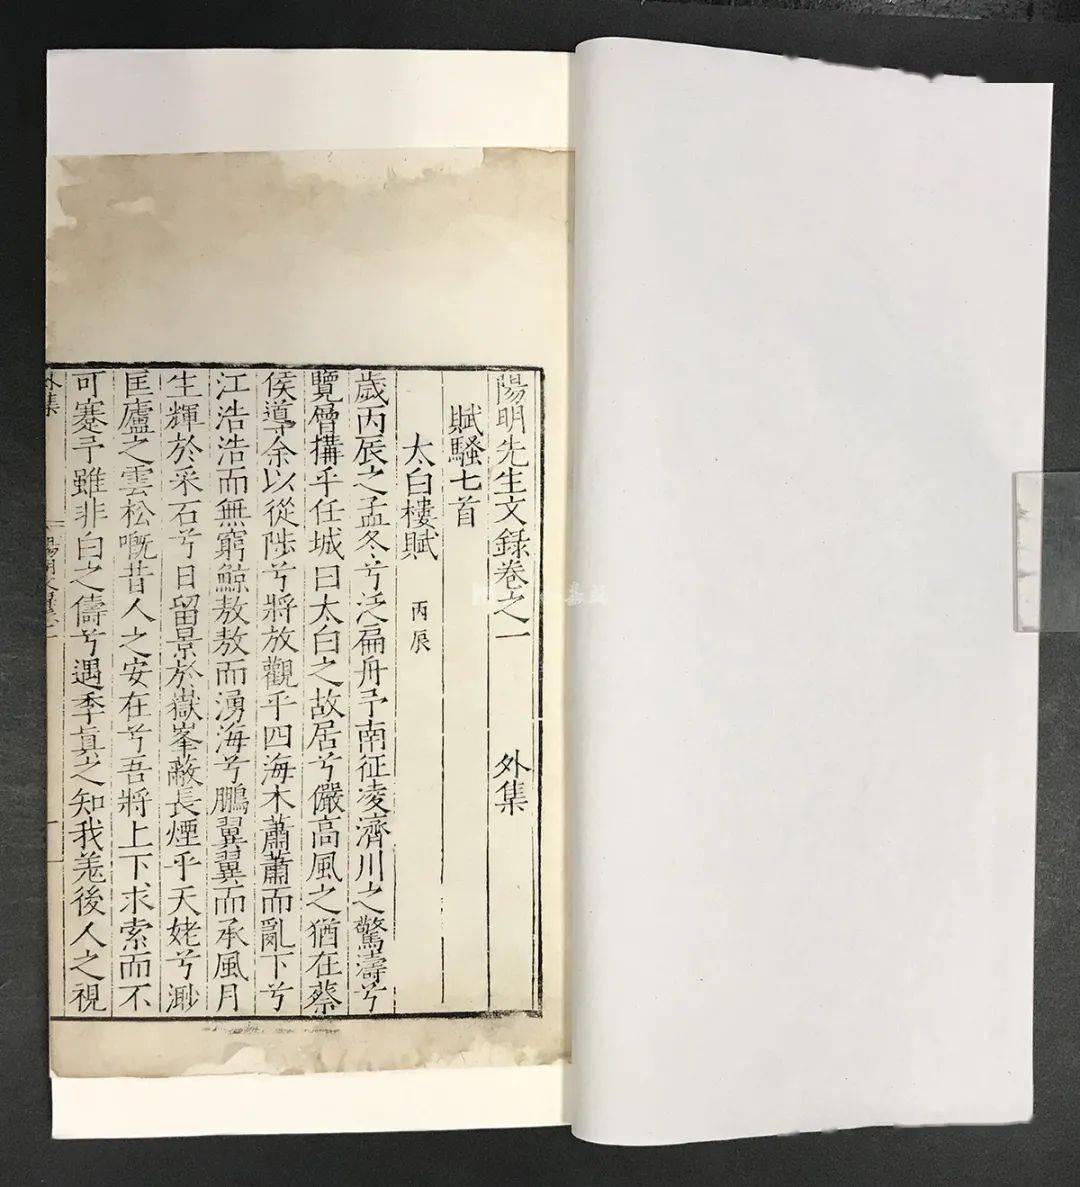 陽明先生文錄卷之一 外集
賦騷七首
太白樓賦 丙辰
歲丙辰之孟冬兮泛扁舟予南征凌濟川之驚濤兮
覽層構乎任城曰太白之故居兮儼高風之猶在蔡
侯導余以從陟兮將放觀乎四海木蕭蕭而亂下兮
江浩浩而無窮鯨敖敖而湧海兮鵬翼翼而承風月
生輝於采石兮日留景於嶽峯蔽長煙乎天姥兮渺
匡廬之雲松嘅昔人之安在兮吾將上下求索而不
可蹇予雖非白之儔兮遇季真之知我羌後人之視
外集